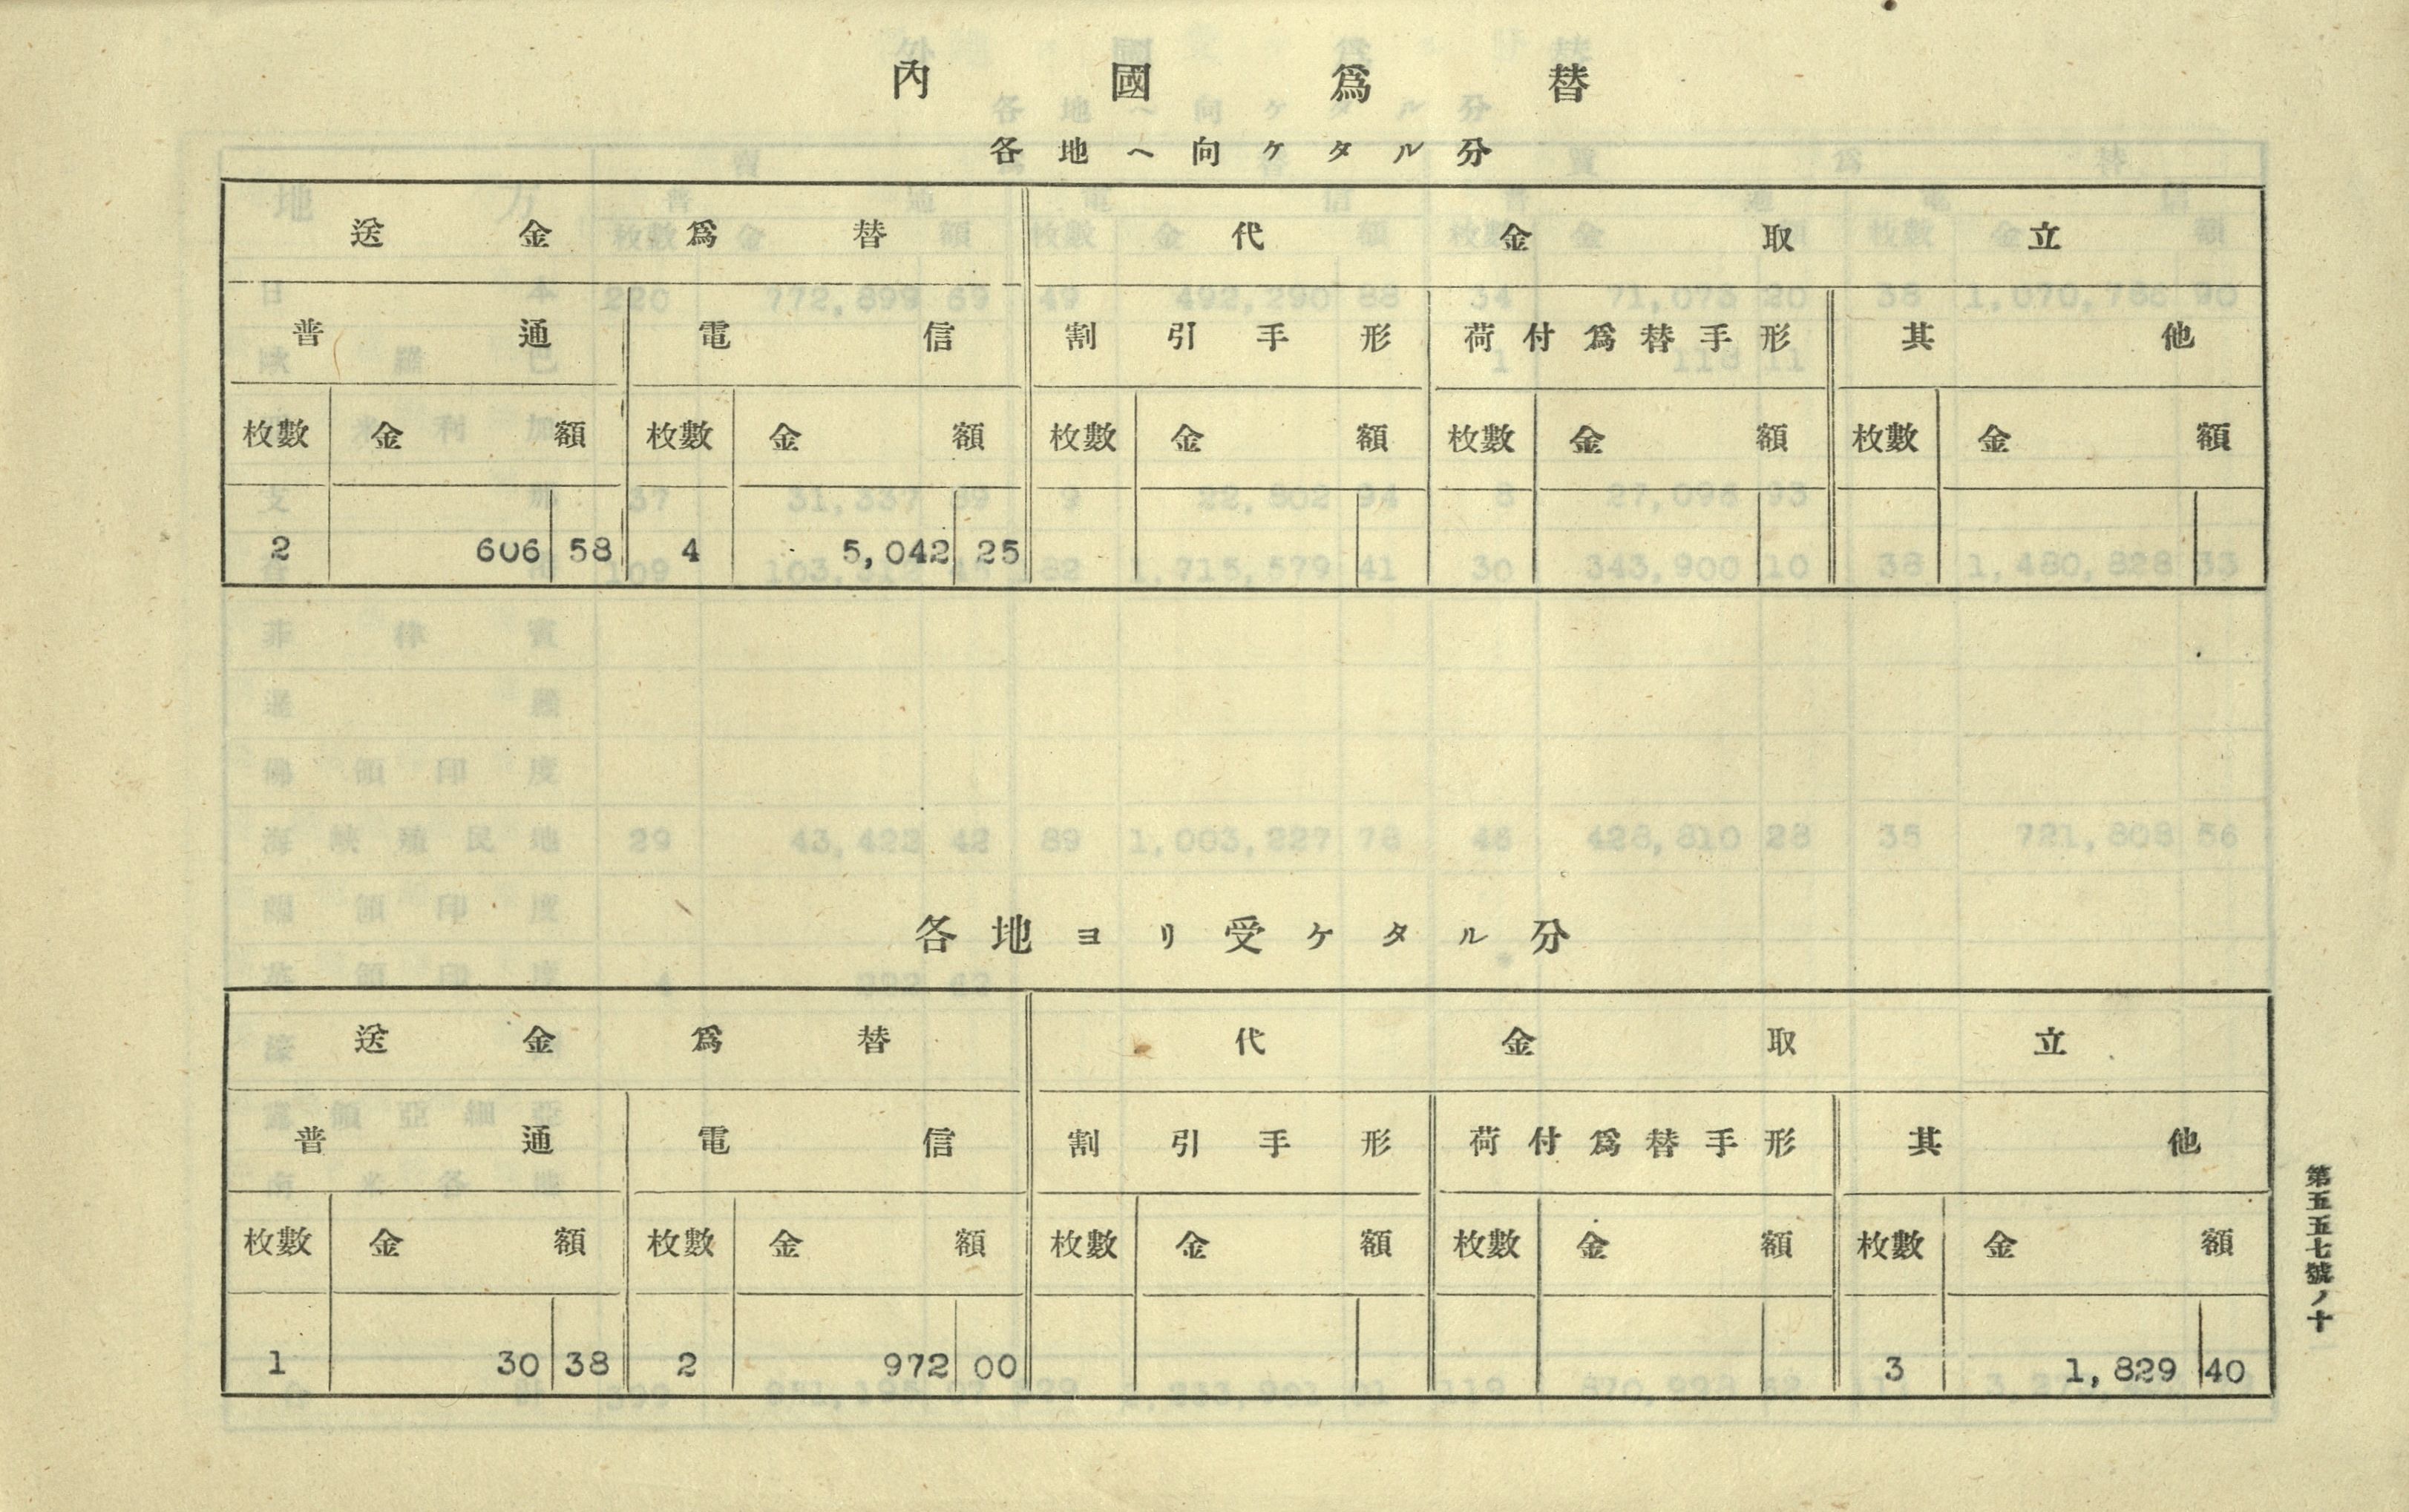 內國爲替
各地ヘ向ケタル分
送金爲替 代金取立
普通 電信 割引手形 荷付爲替手形 其他
枚數 金額 枚數 金額 枚數 金額 枚數 金額 枚數 金額
2 606 58 4 5,042 25
各地ヨリ受ケタル分
送金爲替 代金取立
普通 電信 割引手形 荷付爲替手形 其他
枚數 金額 枚數 金額 枚數 金額 枚數 金額 枚數 金額
1 30 38 2 972 00 3 1,829 40
第五五七號ノ十